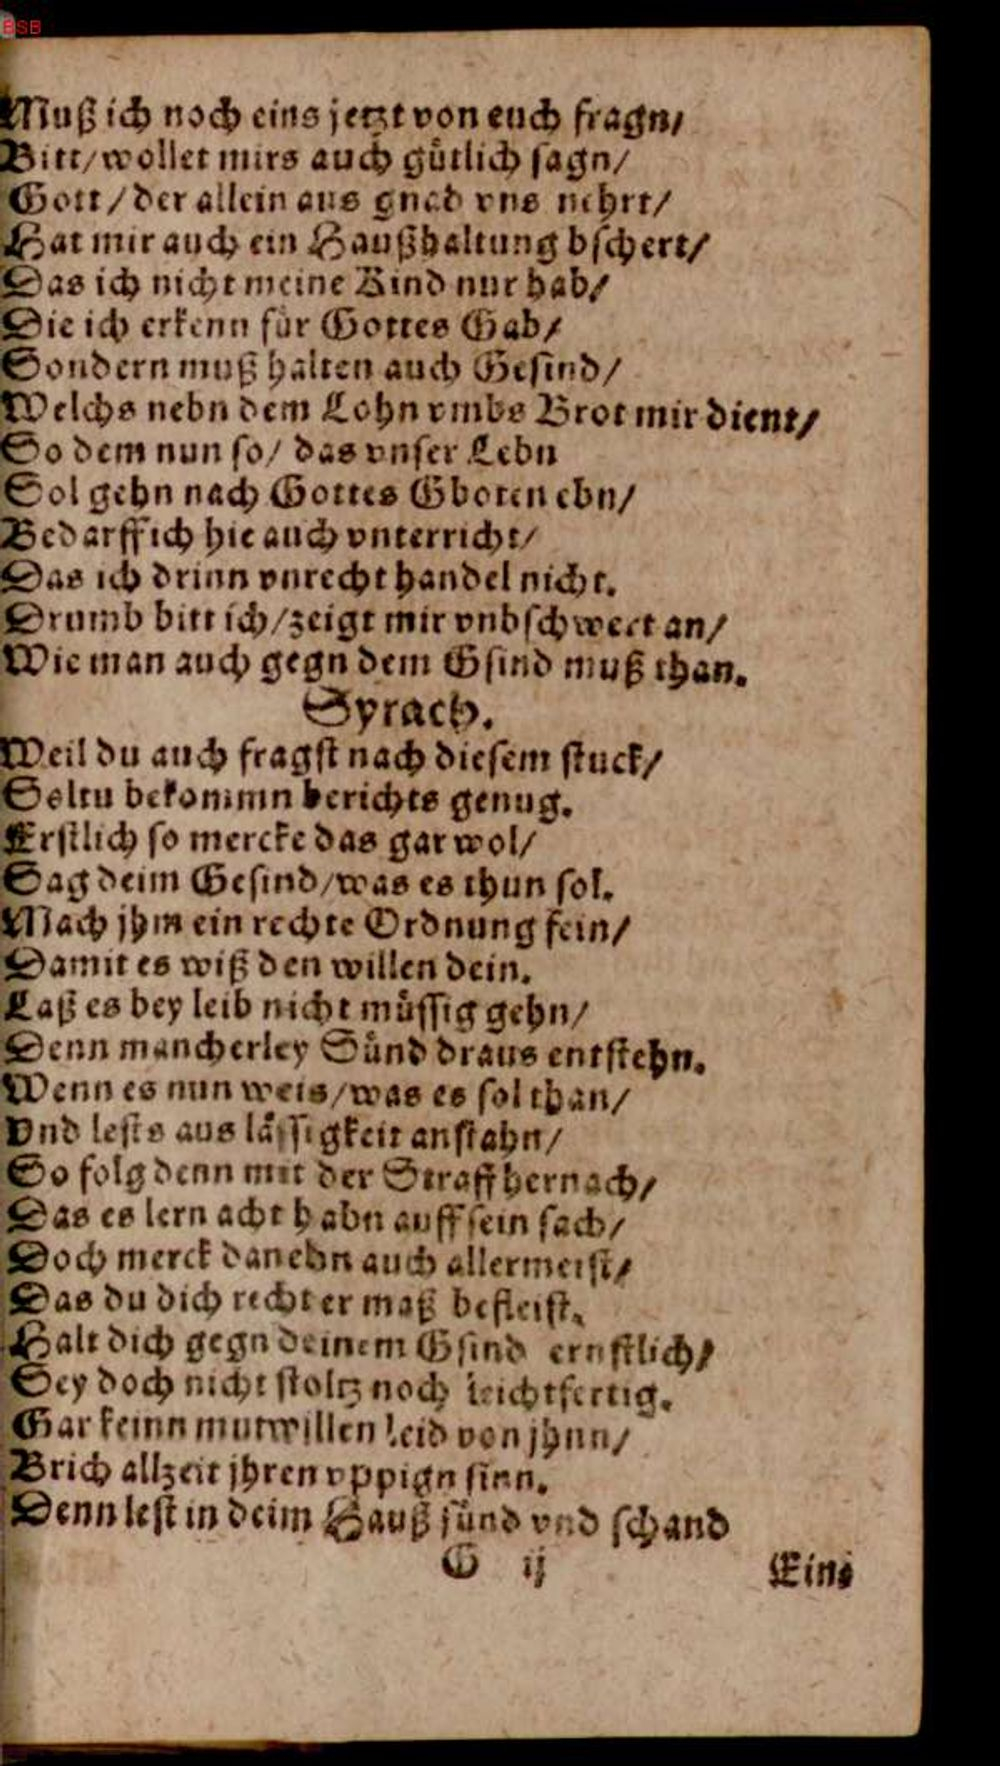 BSB
Muß ich noch eins jetzt von euch fragn/
Bitt/wollet mirs auch gütlich sagn/
Gott/der allein aus gnad vns nehrt/
Hat mir auch ein Haußhaltung bschert/
Das ich nicht meine Kind nur hab/
Die ich erkenn für Gottes Gab/
Sondern muß halten auch Gesind/
Welchs nebn dem Lohn vmbs Brot mir dient/
So dem nun so/ das vnser Lebn
Sol gehn nach Gottes Gboten ebn/
Bedarff ich hie auch vnterricht/
Das ich drinn vnrecht handel nicht.
Drumb bitt ich/zeigt mir vnbschwert an/
Wie man auch gegn dem Gsind muß than.
Syrach.
Weil du auch fragst nach diesem stuck/
Soltu bekommn berichts genug.
Erstlich so mercke das gar wol/
Sag deim Gesind/was es thun sol.
Mach jhm ein rechte Ordnung fein/
Damit es wiß den willen dein.
Laß es bey leib nicht müssig gehn/
Denn mancherley Sünd draus entstehn.
Wenn es nun weis/was es sol than/
Vnd lests aus lässigkeit anstahn/
So folg denn mit der Straff hernach/
Das es lern acht habn auff sein sach/
Doch merck danebn auch allermeist/
Das du dich rechter maß befleist.
Halt dich gegn deinem Gsind ernstlich/
Sey doch nicht stoltz noch leichtfertig.
Gar keinn mutwillen leid von jhnn/
Brich allzeit jhren vppign sinn.
Denn lest in deim Hauß sünd vnd schand
G ij
Eins